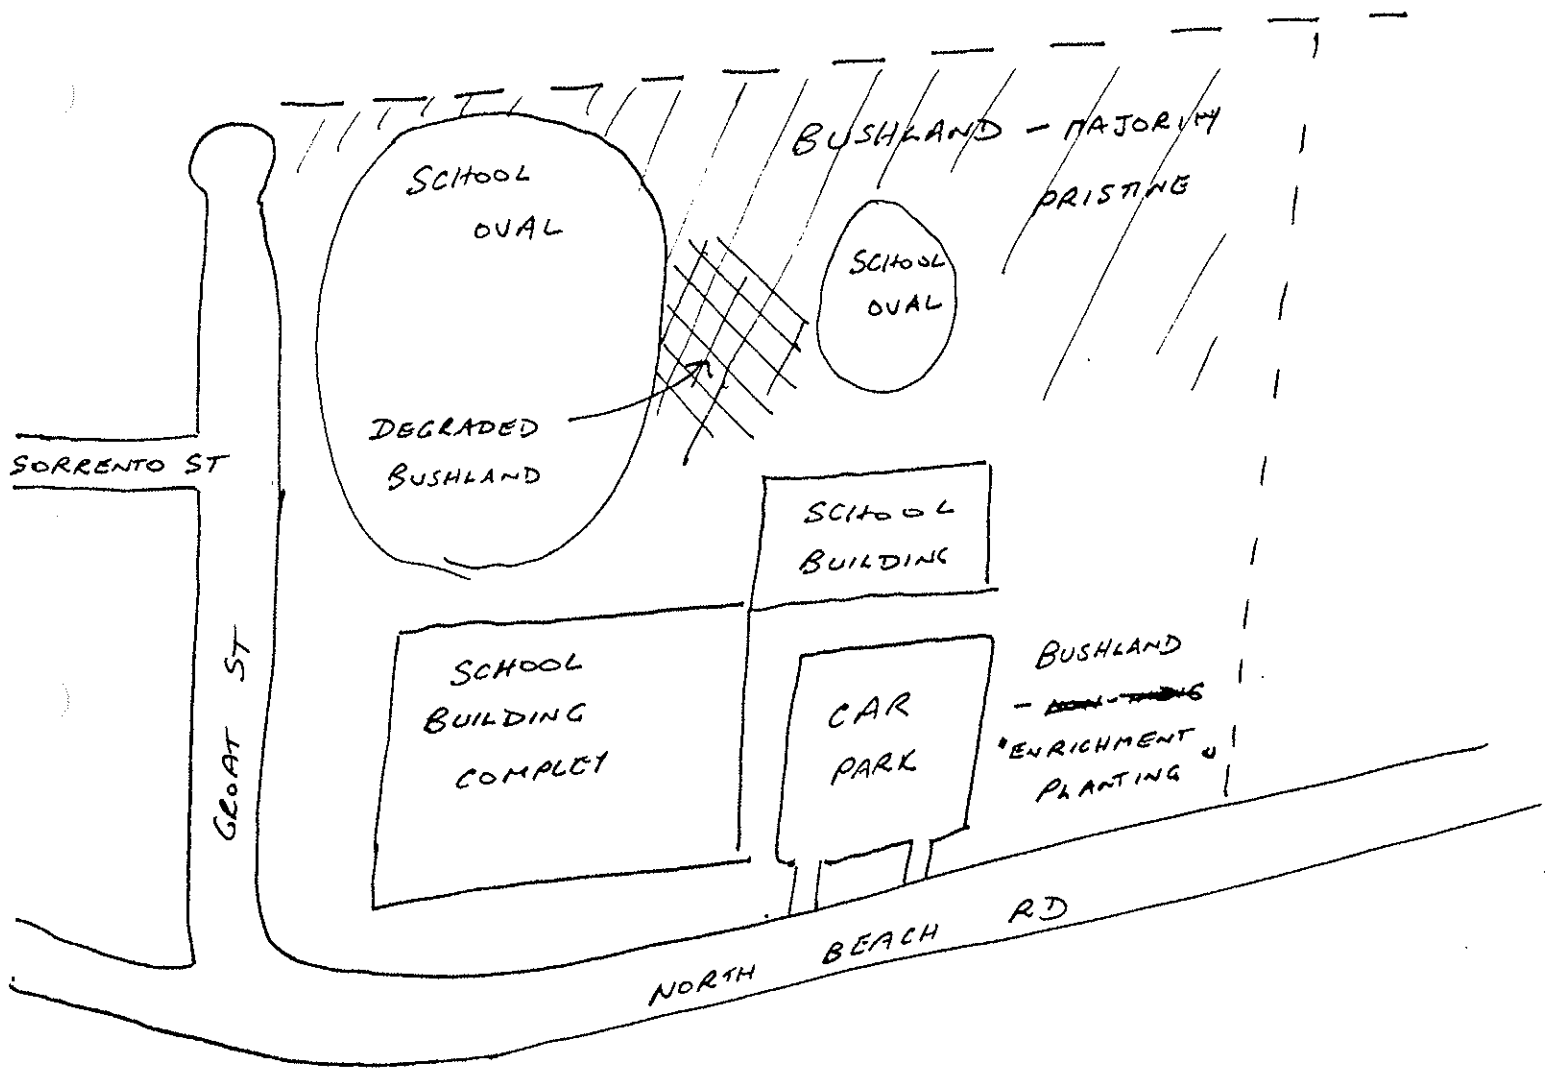 BUSHLAND - MAJORITY
PRISTINE
SCHOOL
OVAL
SCHOOL
OVAL
DEGRADED
BUSHLAND
SORRENTO ST
SCHOOL
BUILDING
SCHOOL
BUILDING
COMPLEX
CAR
PARK
BUSHLAND
-
"ENRICHMENT
PLANTING"
GROAT ST
NORTH BEACH RD